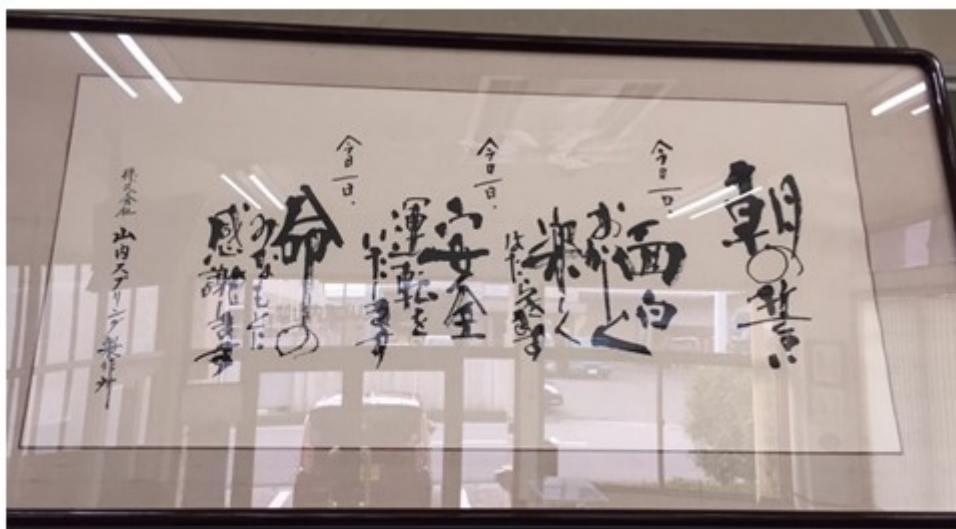 朝の誓い
今日一日、
面白
おかしく
楽しく
はたらきます
今日一日、
安全
運転を
いたします
今日一日、
命の
みなもとに
感謝します
株式会社 山内スプリング製作所